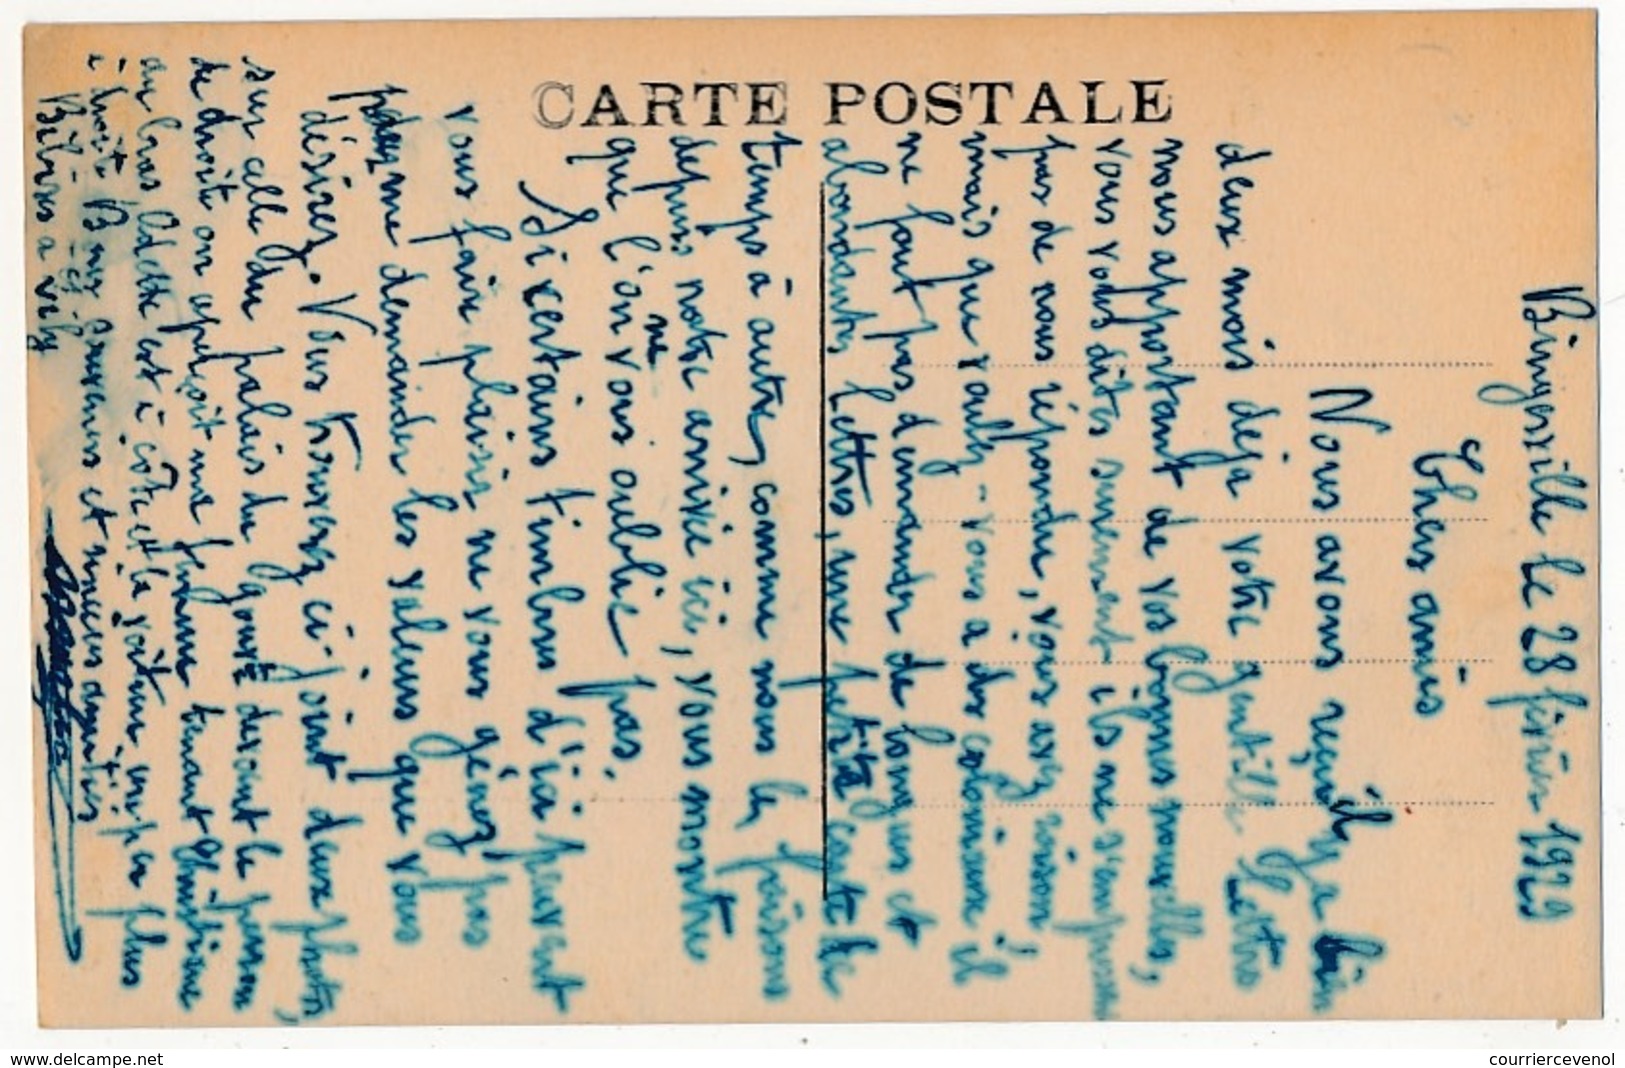 CARTE POSTALE
Bingerville le 28 février 1929
Chers amis
Nous avons reçus il y a bien
deux mois déja votre gentille lettre
nous apportant de vos bonnes nouvelles,
vous vous dites surement ils ne s'empressent
pas de nous répondre, vous avez raison,
mais que voulez-vous a des coloniaux il
ne faut pas demander de longues et
abondantes lettres, une petite carte de
temps à autre, comme nous le faisons
depuis notre arrivée ici, vous montre
que l'on ne vous oublie pas.
Si certains timbres d'ici peuvent
vous faire plaisir ne vous génez pas
pour me demander les valeurs que vous
désirez. Vous trouverez ci-joint deux photos,
sur celle du palais du gouvr devant le perron
de droite on aperçoit une femme tenant Christiane
au bras Odette est à côté et la voiture un peu plus
à droite. Bons souvenirs et sincères amitiés
courriercevenol
www.delcampe.net